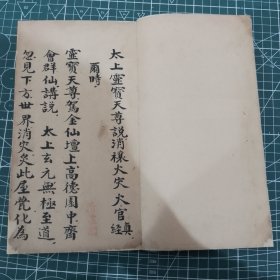 太上靈寳天尊說消禳火灾火官真經
爾時
靈寳天尊駕金仙壇上高德園中齊
會群仙講説太上玄元無極至道
忽見下方世界消灾炎此屋凳化為